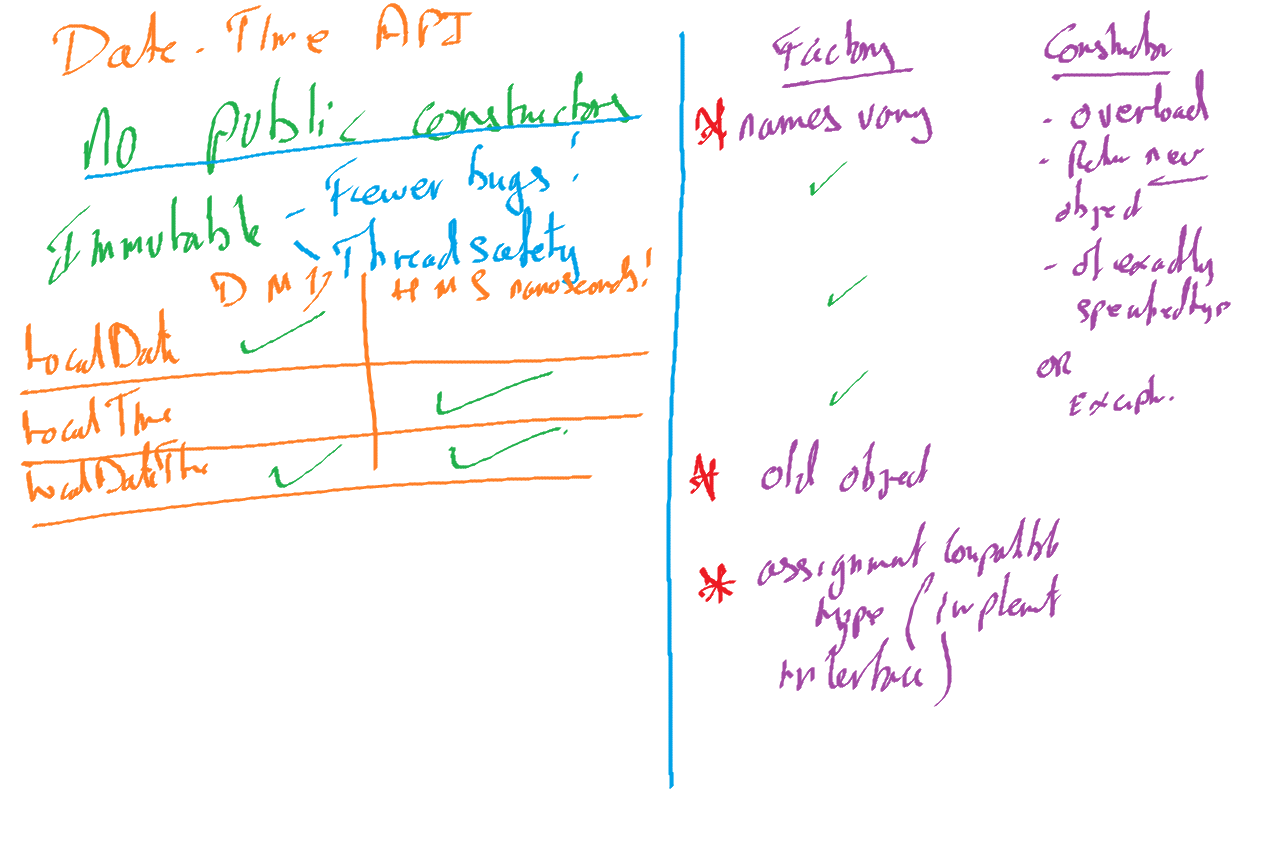 Date-Time API
No public constructors
Immutable - Fewer bugs!
- Thread safety
D M Y H M S nanoseconds!
LocalDate ✓
LocalTime ✓
LocalDateTime ✓ ✓
Factory
* names vary
✓
✓
✓
* old object
* assignment compatible
type (implement
interface)
Constructor
- overload
- Return new
object
- of exactly
specified type
OR
Except.